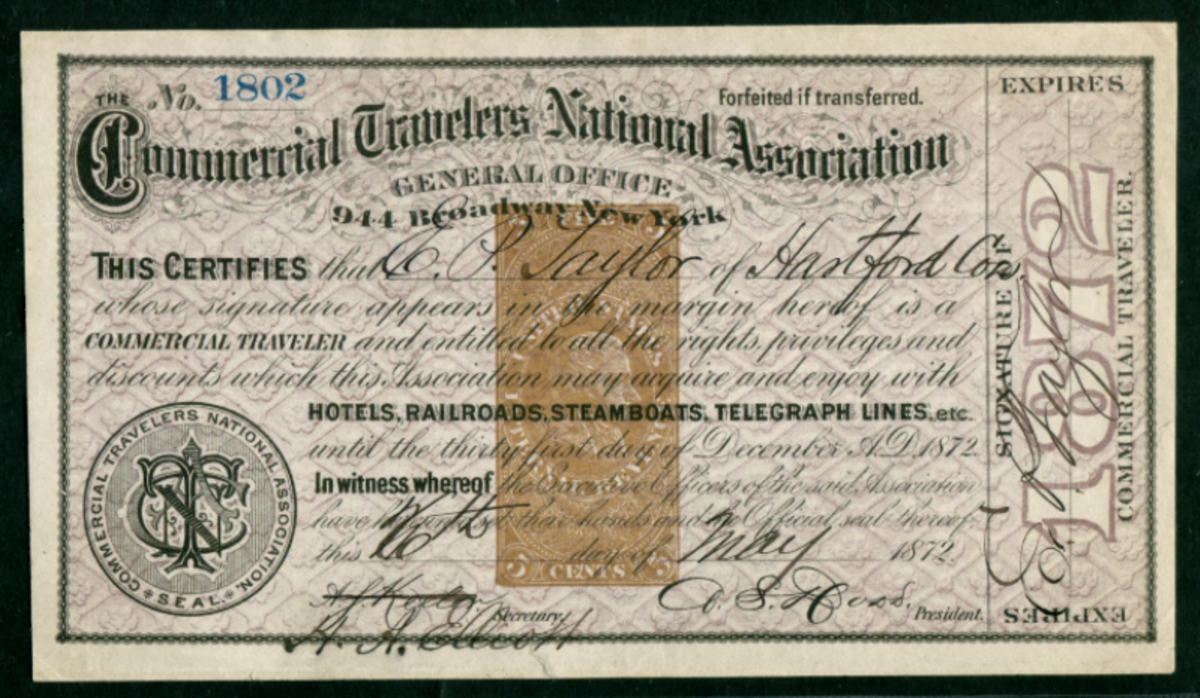 No. 1802
Forfeited if transferred.
THE Commercial Travelers National Association
GENERAL OFFICE
944 Broadway New York
THIS CERTIFIES that E. P. Taylor of Hartford Con.
whose signature appears in the margin hereof is a
COMMERCIAL TRAVELER and entitled to all the rights, privileges and
discounts which this Association may acquire and enjoy with
HOTELS, RAILROADS, STEAMBOATS, TELEGRAPH LINES, etc.
until the thirty first day of December A.D. 1872.
In witness whereof the Executive Officers of the said Association
have hereunto set their hands and the Official seal thereof
this day of May 1872.
Secretary.
H. A. Elliott
President.
COMMERCIAL TRAVELERS NATIONAL ASSOCIATION.
SEAL
5 CENTS 5
EXPIRES
1872
SIGNATURE OF
E. P. Taylor
COMMERCIAL TRAVELER.
EXPIRES